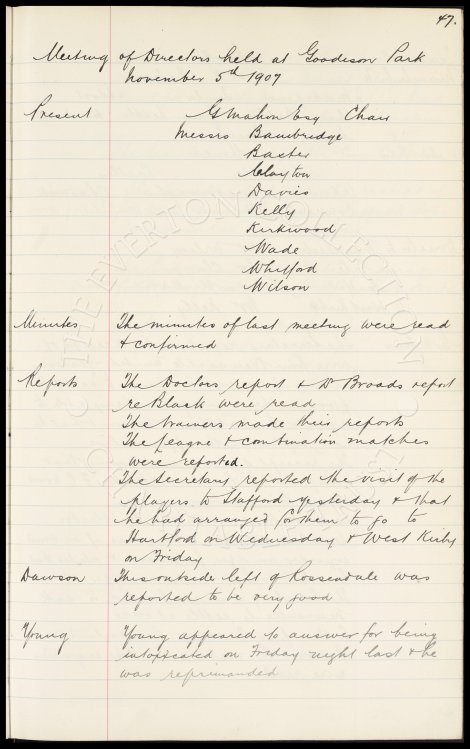 47.
Meeting of Directors held at Goodison Park
November 5th 1907
Present G Mahon Esq Chair
Messrs Bainbridge
Baxter
Clayton
Davies
Kelly
Kirkwood
Wade
Whitford
Wilson
Minutes The minutes of last meeting were read
& confirmed
Reports The Doctors report & Dr Broads report
re Black were read
The trainers made their reports
The League & combination matches
were reported.
The Secretary reported the visit of the
players to Stafford yesterday & that
he had arranged for them to go to
Hartford on Wednesday & West Kirby
on Friday
Dawson This outside left of Rossendale was
reported to be very good
Young Young appeared to answer for being
intoxicated on Friday night last & he
was reprimanded
THE EVERTON COLLECTION